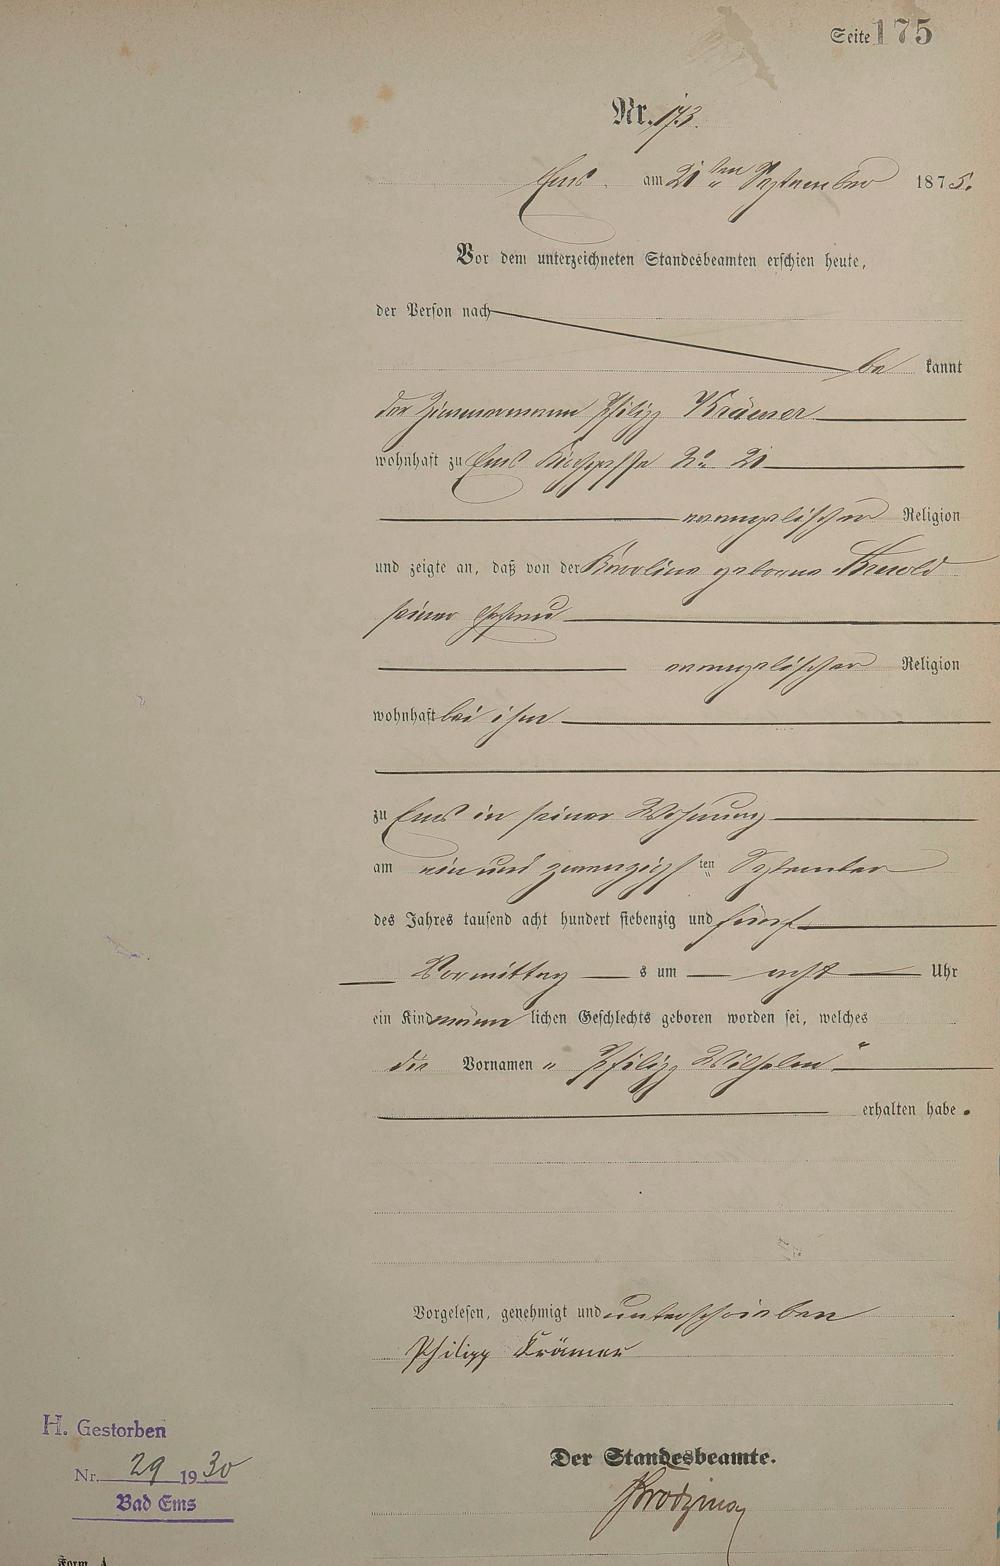 Seite 175
Nr. 173.
Ems am 21ten September 1875.
Vor dem unterzeichneten Standesbeamten erschien heute,
der Person nach
be kannt
der Zimmermann Philipp Krämer
wohnhaft zu Ems Kirchgasse No 21
evangelischer Religion
und zeigte an, daß von der Karoline geborne
seiner Ehefrau
evangelischer Religion
wohnhaft bei ihm
zu Ems in seiner Wohnung
am ein und zwanzigsten September
des Jahres tausend acht hundert siebenzig und fünf
Vormittag s um acht Uhr
ein Kind männ lichen Geschlechts geboren worden sei, welches
die Vornamen „ Philipp Wilhelm "
erhalten habe.
Vorgelesen, genehmigt und unterschrieben
Philipp Krämer
Der Standesbeamte.
H. Gestorben
Nr. 29 1930
Bad Ems
Form. A